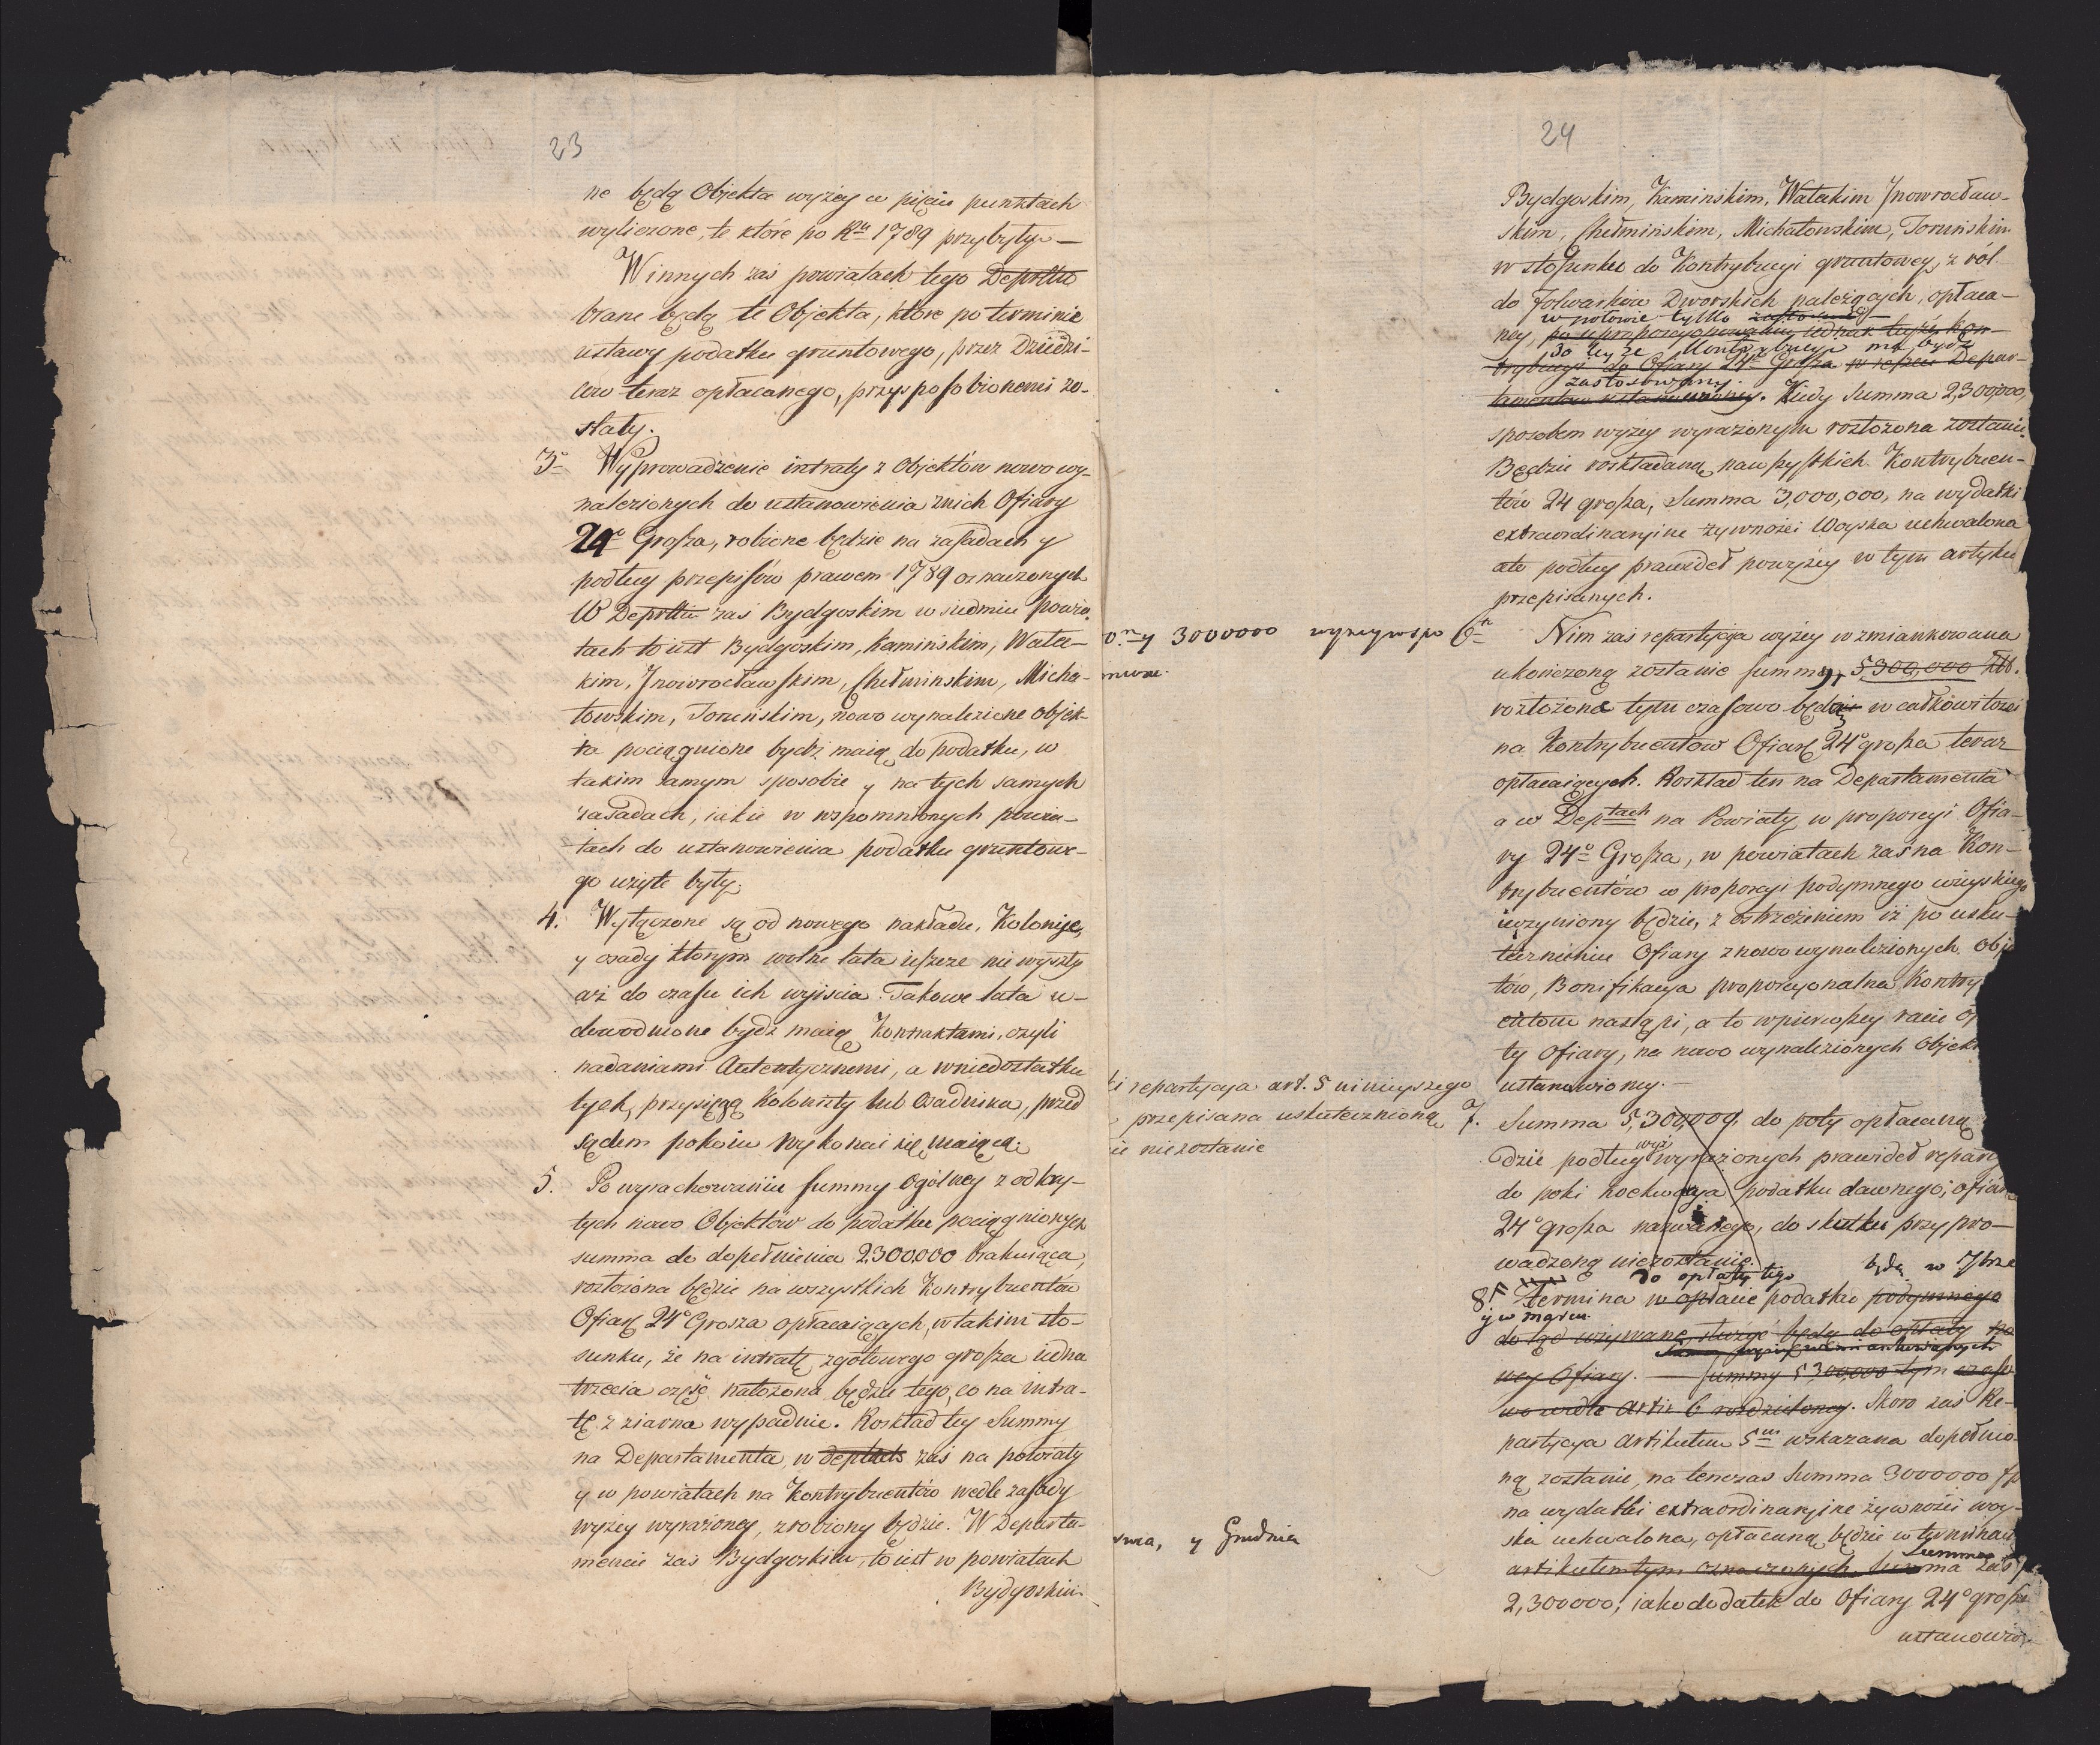 23
ne będą Objekta wyżey w pięciu punktach
wyliczone, te które po Rku 1789 przybyły —
W innych zaś powiatach tego Deprttu
brane będą te Objekta, które po terminie
ustawy podatku gruntowego, przez Dziedzi-
ców teraz opłacanego, przysposobionemi zo-
stały.
3o Wyprowadzenie intraty z Objektów nowo wy-
nalezionych do ustanowienia z nich Ofiary
24o Grosza, robione będzie na zasadach y
podług przepisów prawem 1789 oznaczonych
W Deprttu zaś Bydgoskim w siedmiu powia-
tach to iest Bydgoskim, Kaminskim, Wałec-
kim, Jnowrocławskim, Chełminskim, Micha-
łowskim, Toruńskim, nowo wynalezione objek-
ta pociągnione bydź maią do podatku, w
takim samym sposobie y na tych samych
zasadach, iakie w wspomnionych powia-
tach do ustanowienia podatku gruntowe-
go użyte były.
4. Wyłączone są od nowego nakładu, Kolonije,
y osady którym wolne lata ieszcze nie wyszły
aż do czasu ich wyiścia. Takowe lata u-
dowodnione bydź maią Kontraktami, czyli
nadaniami Autentycznemi, a w niedostatku
tych, przysięgą Kolonisty lub Osadnika, przed
sądem pokoiu wykonać się maiącą.
5. Po wyrachowaniu summy ogólney z odkry-
tych nowo Objektów do podatku pociągnionych
summa do dopełnienia 2300000 brakuiąca,
rozłożona będzie na wszystkich Kontrybuentów
Ofiarę 24o Grosza opłacaiących, w takim sto-
sunku, że na intratę z gotowego grosza iedna
trzecia część nałożona będzie tego, co na intra-
tę z ziarna wypadnie. Rozkład tey Summy
na Departamenta, w deptach zaś na powiaty
y w powiatach na Kontrybuentów wedle zasady
wyżey wyrażoney, zrobiony będzie. W Departa-
mencie zaś Bydgoskim, to iest w powiatach
Bydgoskim
y 3000000 wyzey wspo
mnione
repartycyja art. 5 ninieyszego
przepisana uskutecznioną
nie zostanie
y Grudnia
24
Bydgoskim, Kaminskim, Wałeckim Jnowrocław-
skim, Chełmińskim, Michałowskim, Toruńskim
w stosunku do Kontrybucyi gruntowey, z ról
do folwarków Dworskich należących, opłaca-
w połowie tylko
ney,
do tey że Kontrybucyi ma bydź
trybucyi do Ofiary 24o Grosza w reszcie Depar-
zastosowany.
tamentów ustanowioney. Kiedy Summa 2,300,000,
sposobem wyzey wyrażonym rozłożona zostanie.
Będzie rozkładaną na wszystkich Kontrybuen-
tów 24 grosza, Summa 3,000,000, na wydatki
extraordinaryjne żywności Woyska uchwalona
ale podług prawideł powyżey w tym artyku
przepisanych.
6. Nim zaś repartycya wyżey wzmiankowana
ukończoną zostanie summy 5,300,000 Złł.
rozłożone tym czasowo będą w całkowitości
na Kontrybuentów Ofiarę 24o grosza teraz
opłacaiących. Rozkład ten na Departamenta
a w Deptach na Powiaty w proporcyi Ofia-
ry 24o Grosza, w powiatach zaś na Kon-
trybuentów w proporcyi podymnego wieyskiego
uczyniony będzie, z ostrzeżeniem iż po usku-
tecznieniu Ofiary z nowo wynalezionych Obje
tów, Bonifikacya proporcyonalna Kontry
entom nastąpi, a to w pierwszey racie o
ty Ofiary, na nowo wynalezionych Objek
ustanowioney. —
7. Summa 5,300,000, do poty opłacaną
wyż
dzie podług wyrażonych prawideł repar
do poki koekwacya podatku dawnego; ofiar
24o grosza nazwanego, do skutku przypro-
wadzoną niezostanie.
do opłaty tego będą w 7brze
8. Termina w opłacie podatku podymnego
y w marcu
do tąd używane, służyć będą do opłaty
wey Ofiary. — Summy 5300,000 tym czaso
wo wedle Artik 6 rozdzieloney. Skoro zaś Re-
partycya Artikułem 5m wskazana dopełnio-
ną zostanie, na tenczas Summa 3000000
na wydatki extraordinaryjne żywności woy-
ska uchwalona, opłacaną będzie w terminach
Summa
artikułem tym oznaczonych. Summa zaś
2,300000, iako dodatek do Ofiary 24o grosza
ustanowio